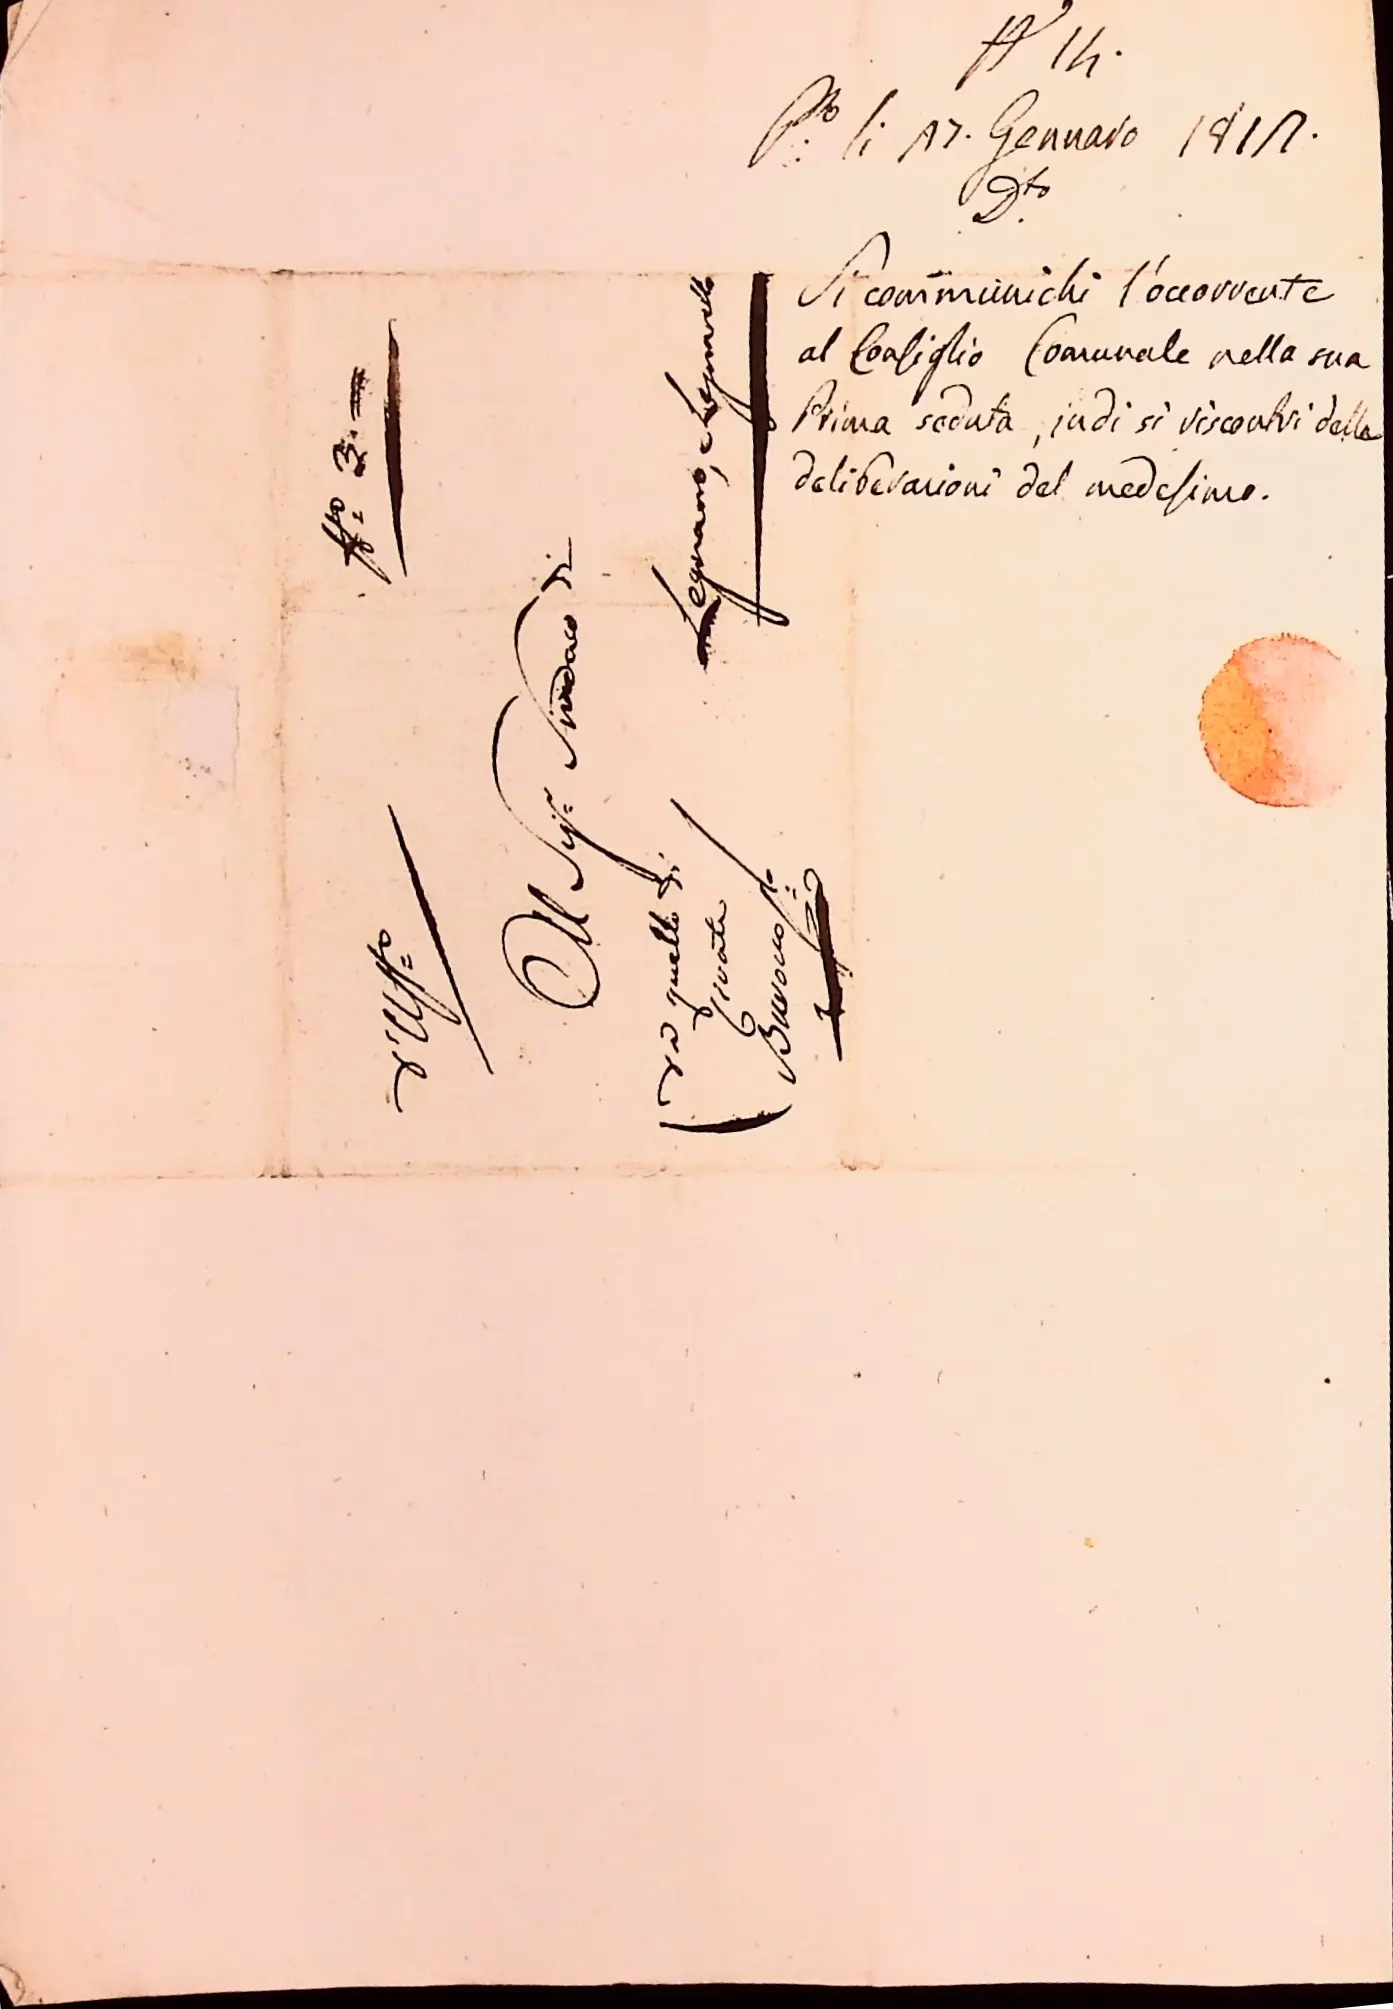 N° 14.
P.to li 17. Gennaro 1812.
D.to
Si communichi l'occorrente
al Consiglio Comunale nella sua
Prima seduta, indi si riscontri delle
deliberazioni del medesimo.
d'Uff.o
N.ro 3.
Al Sig.r Sindaco di
Legnano, e Legnarello
da quello di